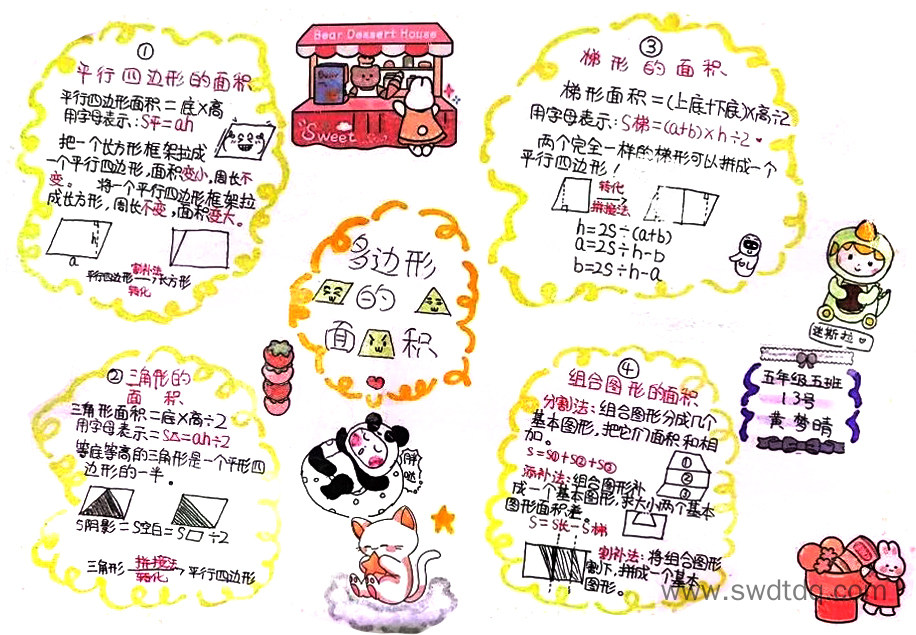 ①
平行四边形的面积
平行四边形面积=底×高
用字母表示:S平=ah
把一个长方形框架拉成
一个平行四边形,面积变小,周长不
变。 将一个平行四边形框架拉
成长方形,周长不变,面积变大。
h
a
平行四边形 割补法 长方形
转化
Bear Dessert House
Bear
Sweet
③
梯形的面积
梯形面积=(上底+下底)×高÷2
用字母表示:S梯=(a+b)×h÷2
两个完全一样的梯形可以拼成一个
平行四边形!
转化
拼接法
h=2S÷(a+b)
a=2S÷h-b
b=2S÷h-a
多边形
的
面积
迷斯拉
五年级五班
13号
黄梦晴
②三角形的
面积
三角形面积=底×高÷2
用字母表示=S△=ah÷2
等底等高的三角形是一个平形四
边形的一半。
S阴影=S空白=S▱÷2
三角形 拼接法 平行四边形
转化
④
组合图形的面积
分割法:组合图形分成几个
基本图形,把它们面积和相
加。
S=S①+S②+S③
①
②
③
添补法:组合图形补
成一个基本图形,求大小两个基本
图形面积差。
S=S长-S梯
割补法:将组合图形
割下,拼成一个基本
图形。
www.swdtdq.com